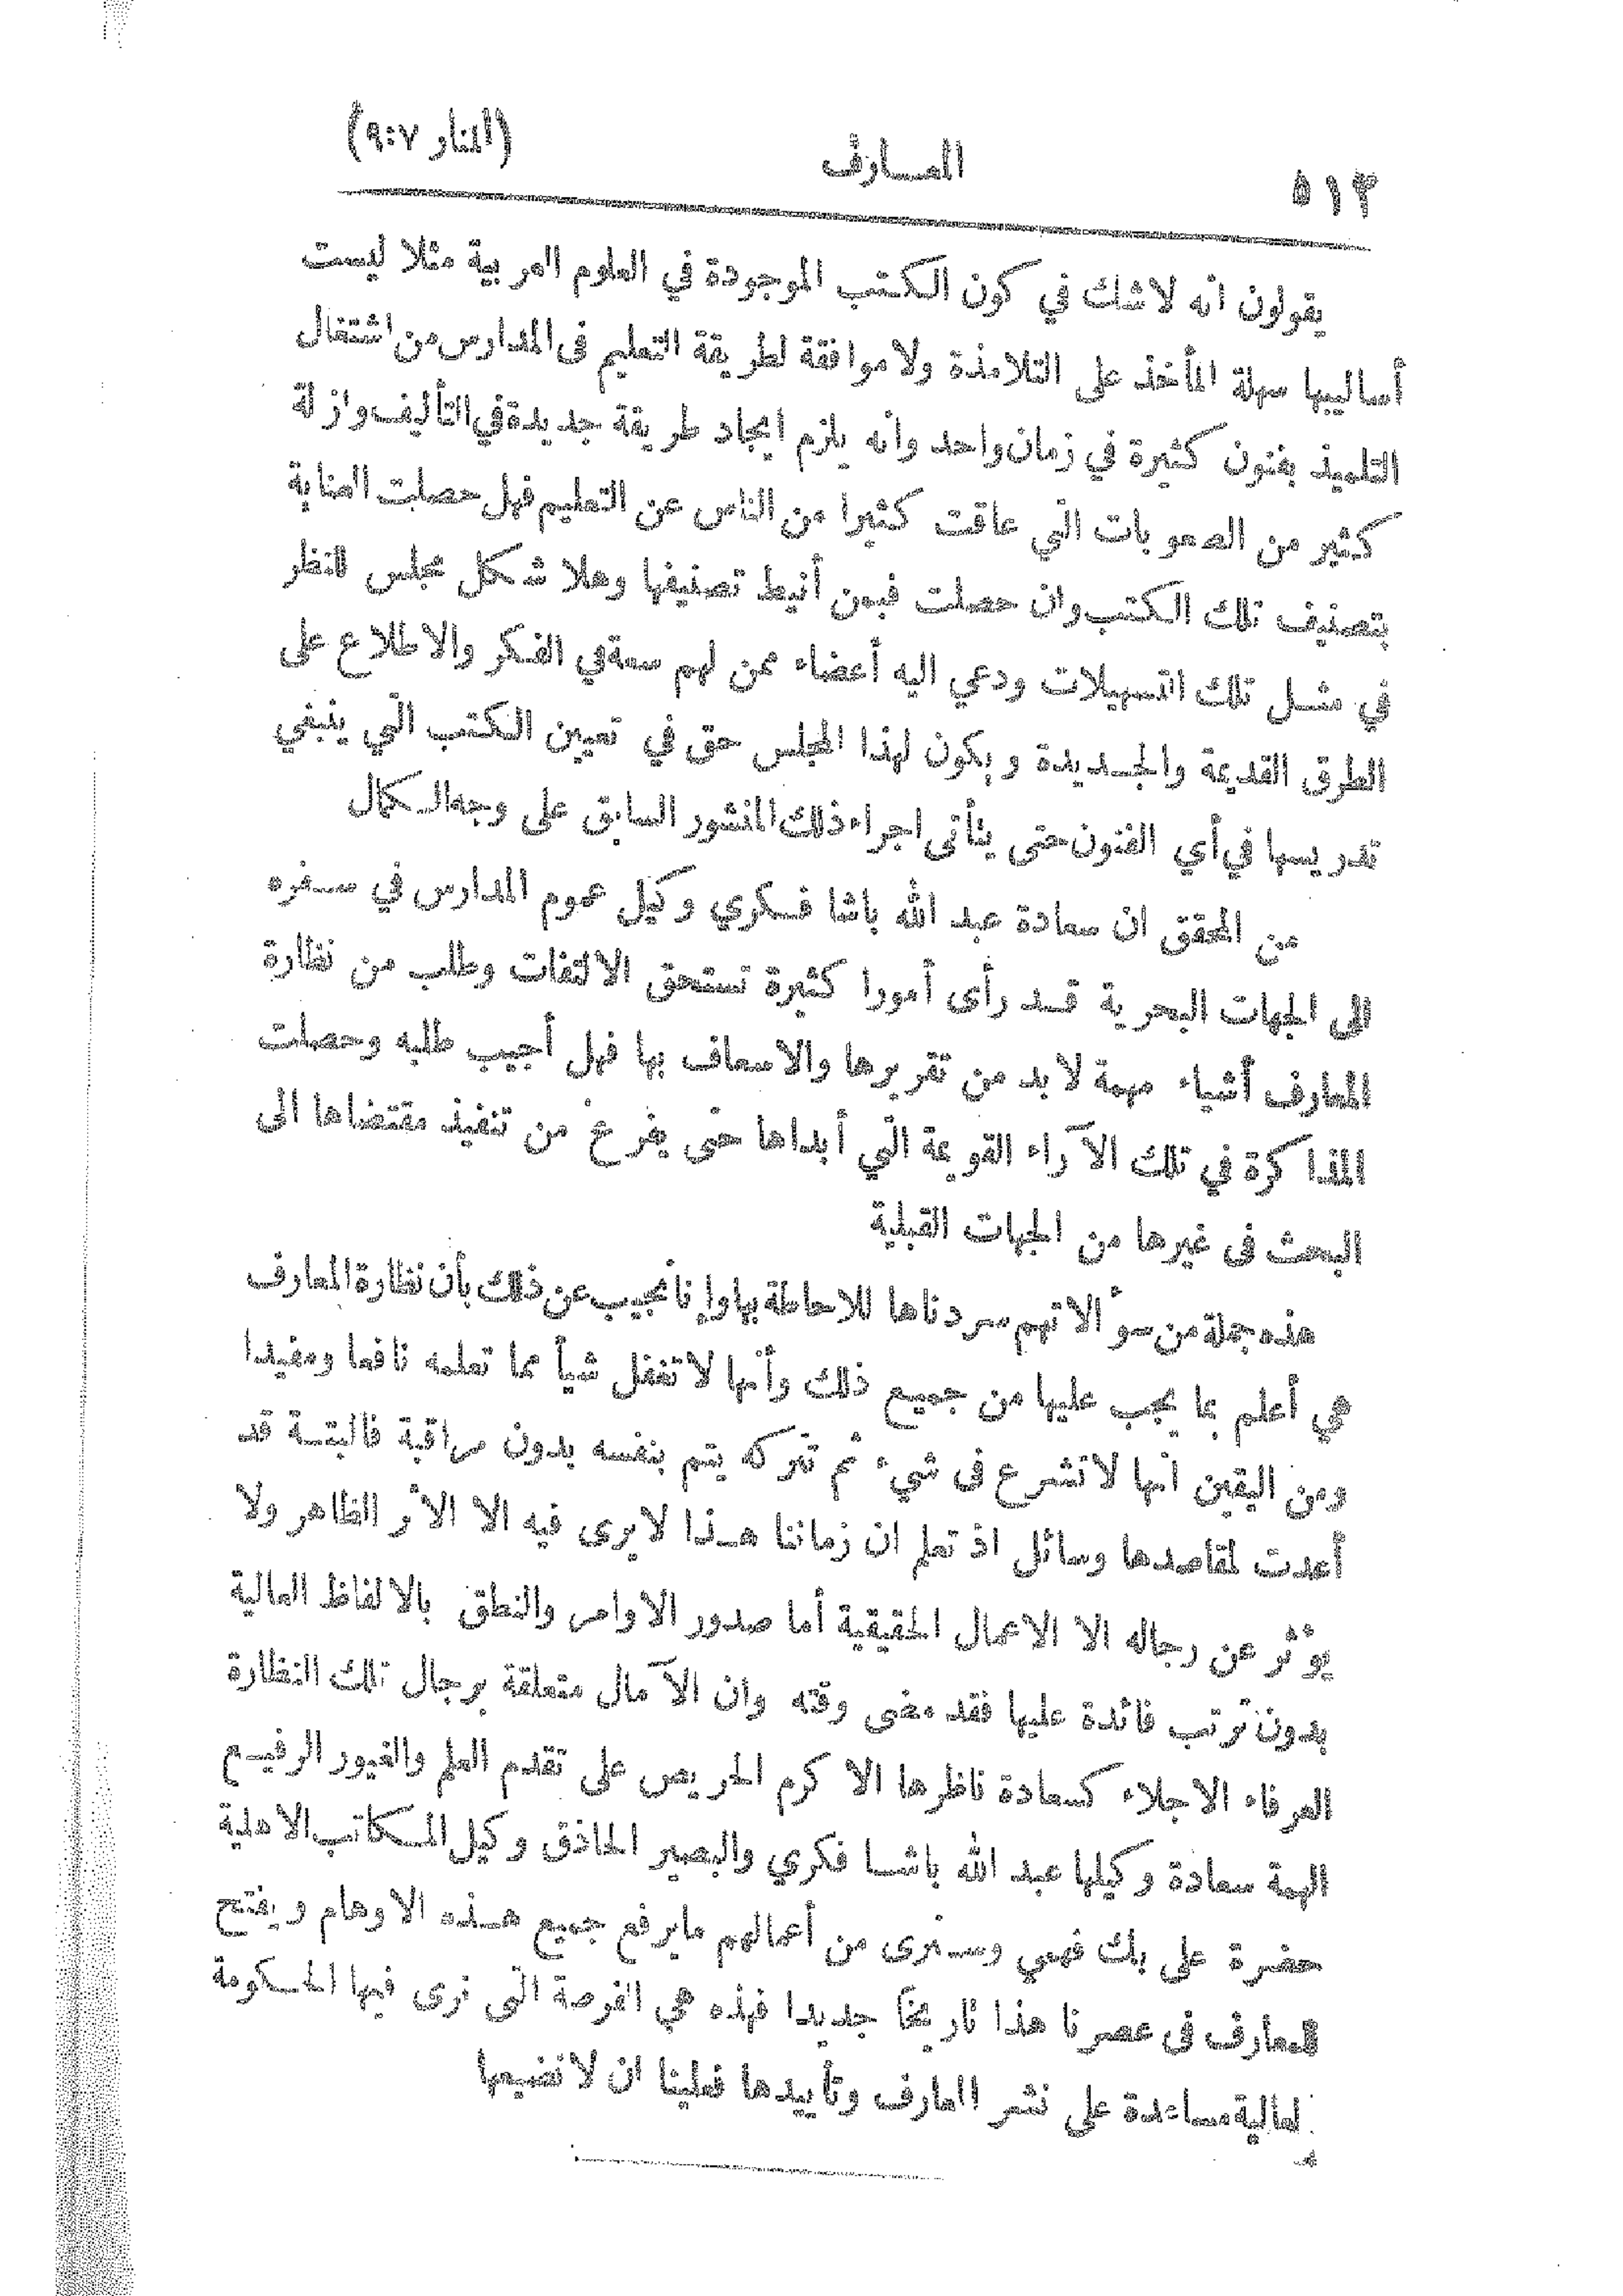 ٥١٢ المعارف (المنار ٩:٧)
يقولون انه لاشك في كون الكتب الموجودة في العلوم العربية مثلا ليست
أساليبها سهلة المأخذ على التلامذة ولا موافقة لطريقة التعليم فى المدارس من اشتغال
التلميذ بفنون كثيرة في زمان واحد وانه يلزم ايجاد طريقة جديدة في التأليف وازلة
كثير من الصعوبات التي عاقت كثيرا من الناس عن التعليم فهل حصلت العناية
بتصنيف تلك الكتب وان حصلت فبمن أنيط تصنيفها وهلا شكل مجلس للنظر
في مثل تلك التسهيلات ودعي اليه أعضاء ممن لهم سعة في الفكر والاطلاع على
الطرق القديمة والجديدة ويكون لهذا المجلس حق في تعيين الكتب التي ينبغي
تدريسها في أي الفنون حتى يتأتى اجراء ذلك المنشور السابق على وجه الكمال
من المحقق ان سعادة عبد الله باشا فكري وكيل عموم المدارس في سفره
الى الجهات البحرية قد رأى أمورا كثيرة تستحق الالتفات وطلب من نظارة
المعارف أشياء مهمة لابد من تقريرها والاسعاف بها فهل أجيب طلبه وحصلت
المذاكرة في تلك الآراء القويمة التي أبداها حتى يفرغ من تنفيذ مقتضاها الى
البحث فى غيرها من الجهات القبلية
هذه جملة من سؤالاتهم سردناها للاحاطة بها وإنا نجيب عن ذلك بأن نظارة المعارف
هي أعلم بما يجب عليها من جميع ذلك وأنها لا تغفل شيأ مما تعلمه نافعا ومفيدا
ومن اليقين انها لاتشرع فى شيء ثم تتركه يتم بنفسه بدون مراقبة فالبتة قد
أعدت لمقاصدها وسائل اذ تعلم ان زماننا هذا لا يرى فيه الا الأثر الظاهر ولا
يؤثر عن رجاله الا الاعمال الحقيقية أما صدور الاوامر والنطق بالالفاظ العالية
بدون ترتب فائدة عليها فقد مضى وقته وان الآمال متعلقة برجال تلك النظارة
العرفاء الاجلاء كسعادة ناظرها الاكرم الحريص على تقدم العلم والغيور الرفيع
الهمة سعادة وكيلها عبد الله باشا فكري والبصير الحاذق وكيل المكاتب الاهلية
حضرة على بك فهمي وسنرى من أعمالهم ما يرفع جميع هذه الاوهام ويفتح
للمعارف فى عصرنا هذا تاريخاً جديدا فهذه هي الفرصة التى نرى فيها الحكومة
لعالية مساعدة على نشر المعارف وتأييدها فعلينا ان لا نضيعها